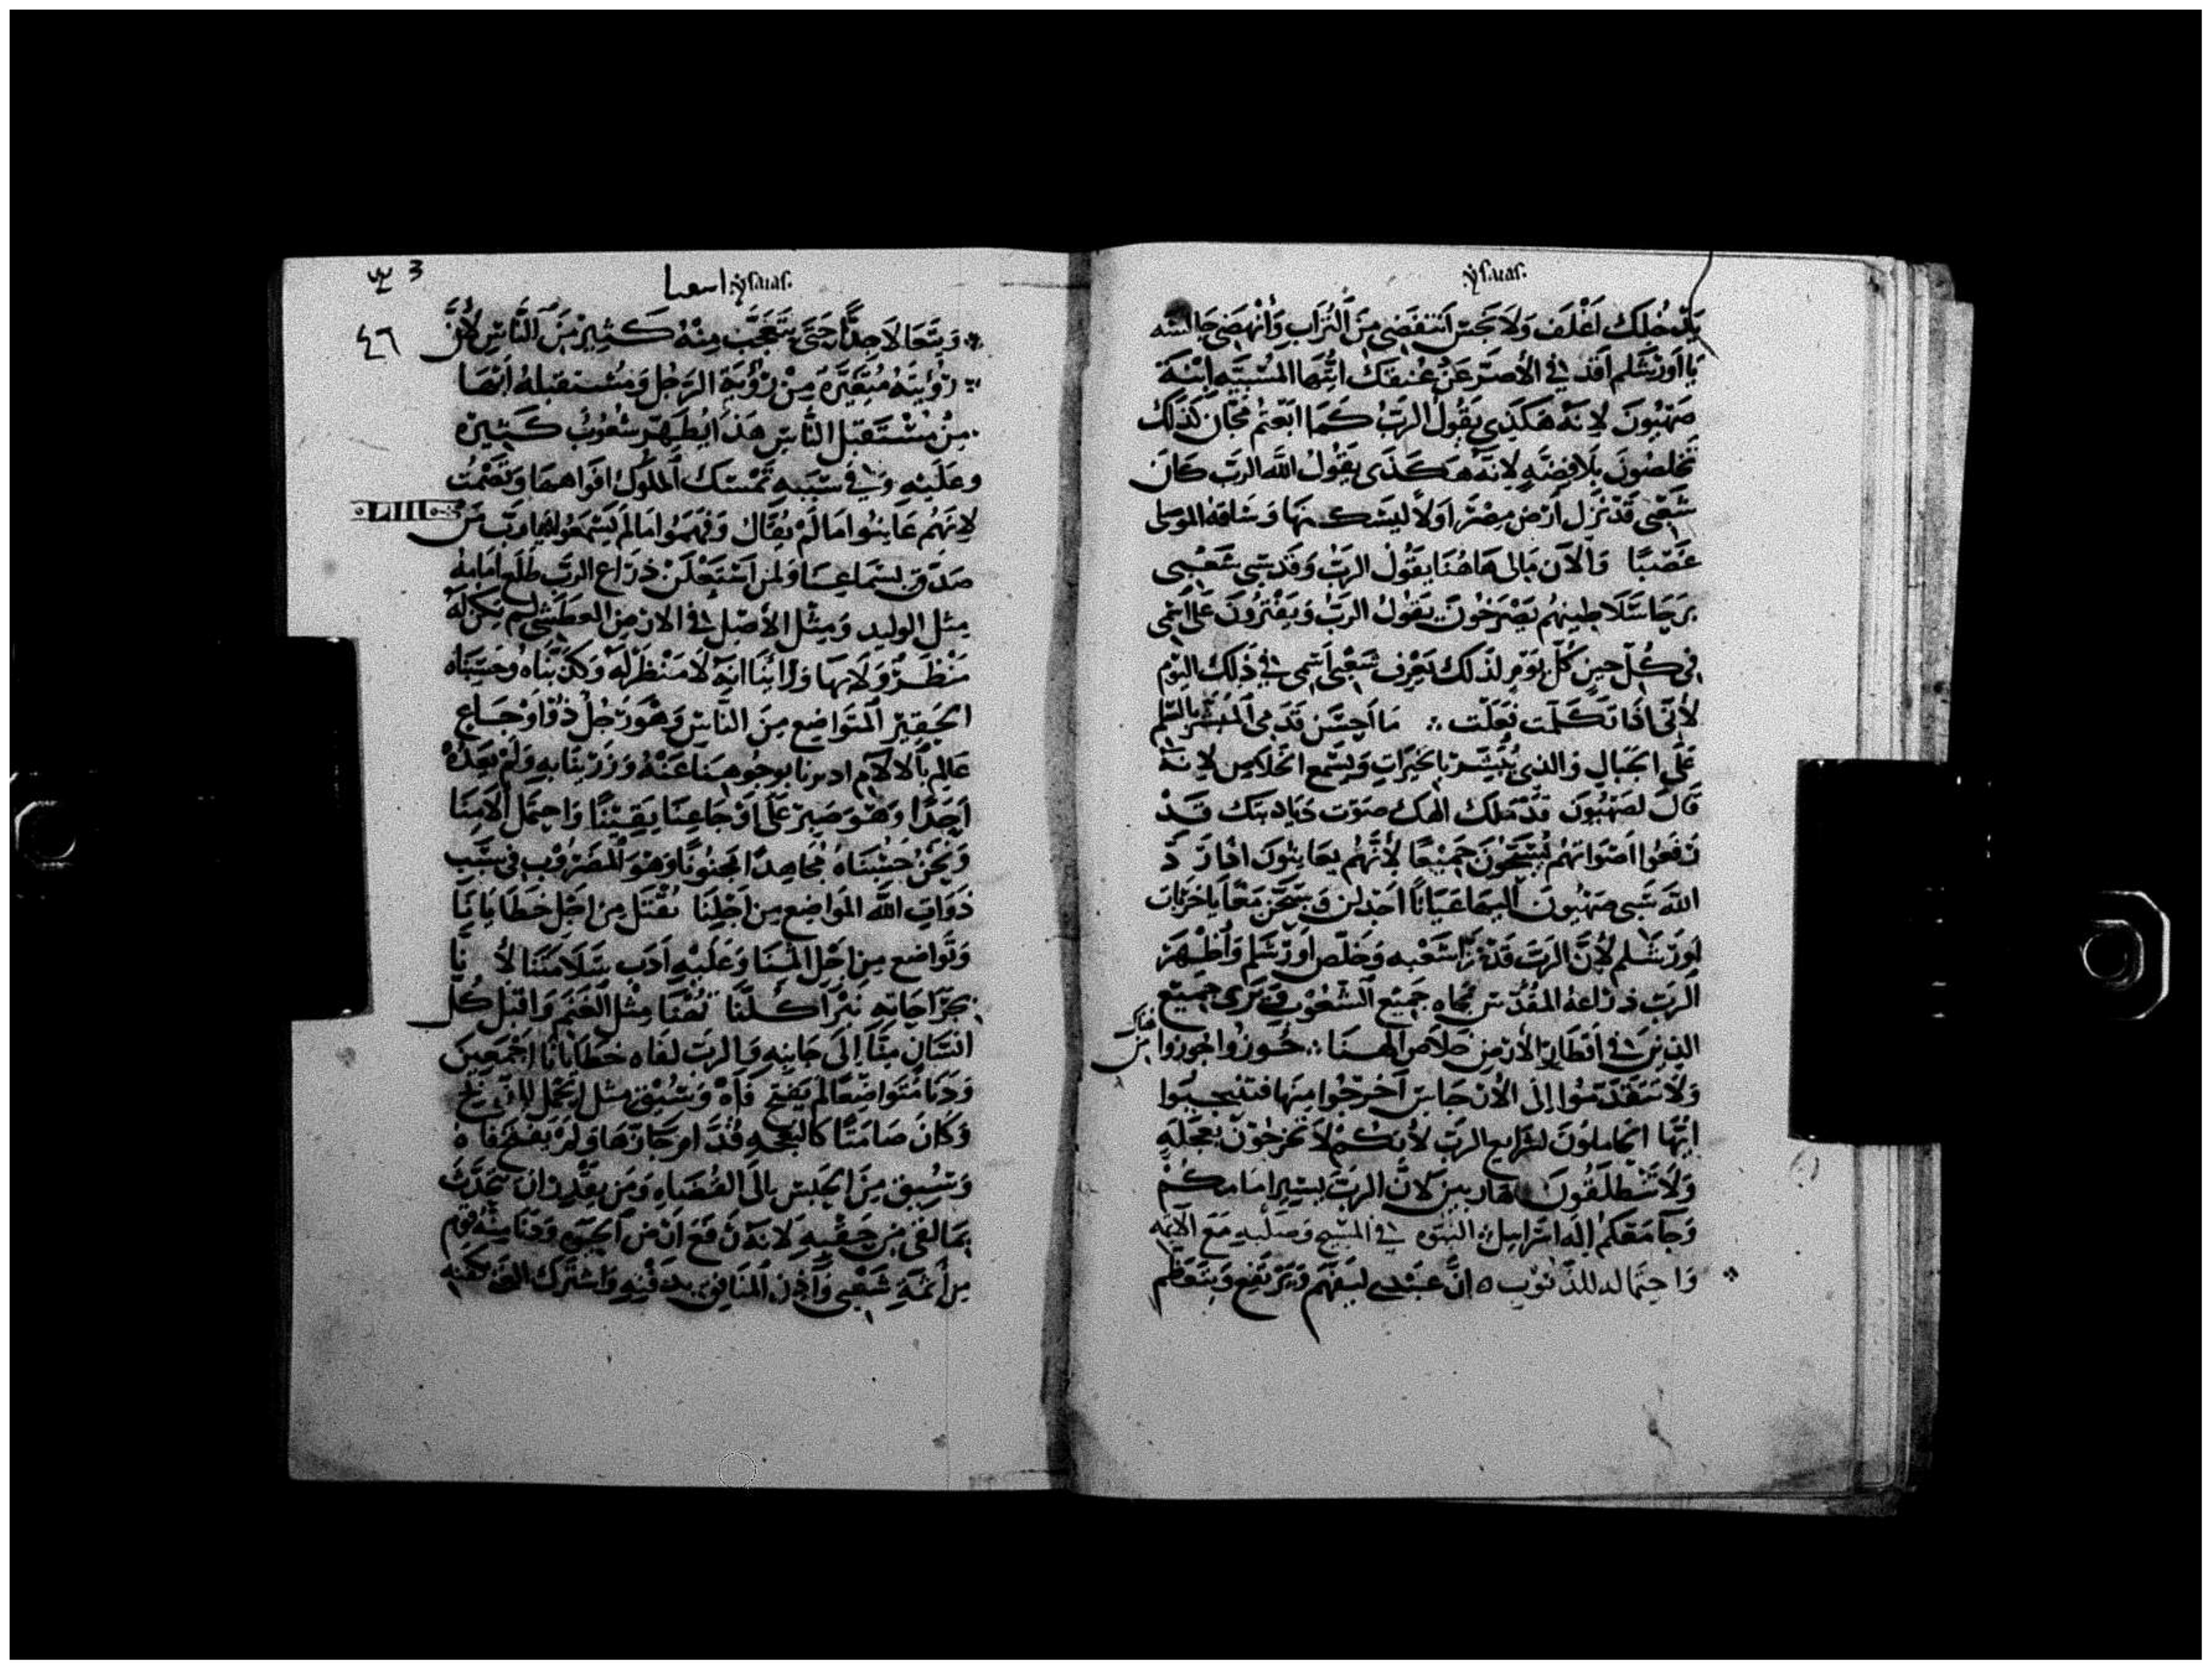 ysaias.
يدخلك اغلف ولا نجس انتفضي من التراب وانهضي جالسه
يا اورشلم افدى الأصر عن عنقك ايتها المسبيه ابنة
صهيون لانه هكذى يقول الرب كما ابعتم مجان كذلك
تخلصون بلا فضه لانه هكذى يقول الله الرب كان
شعبى قد نزل ارض مصر اولا ليسكنها وساقه الموصلى
غصبا والان مالى هاهنا يقول الرب وقد سبى شعبى
برجا سلاطينهم يصرخون يقول الرب ويفترون على اسمى
فى كل حين كل يوم لذلك يعرف شعبى اسمى فى ذلك اليوم
لأنى اذا تكلمت فعلت ما احسن قدمى المبشر بالسلم
على الجبال والذى يبشر بالخيرات ويسمع الخلاص لانه
قال لصهيون قد ملك الهك صوت دياد بتك قد
رفعوا اصواتهم يسبحون جميعا لأنهم يعاينون اذا رد
الله سبى صهيون اليها عيانا اجذلن وسبحن معا يا خربات
اورشلم لأن الرب قد عزا شعبه وخلص اورشلم واظهر
الرب ذراعه المقدس تجاه جميع الشعوب ويرى جميع
الذين فى اقطار الأرض خلاص الهنا حوزوا جوزوا
هناك من
ولا تتقدموا الى الأنجاس اخرجوا منها فتنجبوا
ايها الحاملون لشرايع الرب لأنكم لا تخرجون بعجلة
ولا تنطلقون هاربين لان الرب يسير امامكم
وجامعكم اله اسرايل النبوه فى المسيح وصلبه مع الائمه
واحتماله للذنوب ه ان عبدى ليفهم ويرتفع ويتعظم
ysaias. اسعيا
3
٤٦
ويتعالا جدا حتى يتعجب منه كثير من الناس لأن
رؤيته متغيره من رؤية الرجل ومستقبله ايضا
من مستقبل الناس هذا يطهر شعوب كثيره
وعليه وفى سببه تمسك الملوك افواهها وتصمت
لانهم عاينوا ما لم يقال وفهموا ما لم يسمعوا يا رب من
صدق بسماعنا ولمن استعلن ذراع الرب طلع امامه
مثل الوليد ومثل الأصل فى الارض العطشى لم يكن له
منظر ولا بها ورائنا انه لا منظر له وكذبناه وحسبناه
الحقير المتواضع من الناس وهو رجل ذو اوجاع
عالم بالالام ادبرنا بوجوهنا عنه وزرينا به ولم يعده
احدا وهو صبر على اوجاعنا يقينا واحتمل الامنا
ونحن حسبناه مجاهدا مجنونا وهو المضروب فى سبب
ذوات الله المواضع من اجلنا يقتل من اجل خطايانا
وتواضع من اجل اثمنا وعليه ادب سلامتنا لأنا
بجراحاته نبرا كلنا تهنا مثل الغنم واقبل كل
انسان منا الى جانبه والرب لقاه خطايانا اجمعين
ودنا متواضعا لم يفتح فاه وسيق مثل الحمل للذبح
وكان صامتا كالنعجه قدام جازها ولم يفتح فاه
وسيق من الحبس الى القضاه ومن يقدر ان يحدث
بما لقى من حقبه لانه رفع ارض الحيوه ودنا منه قوم
من ائمة شعبى واخذ المنافق بدفنه واشترك الغنى